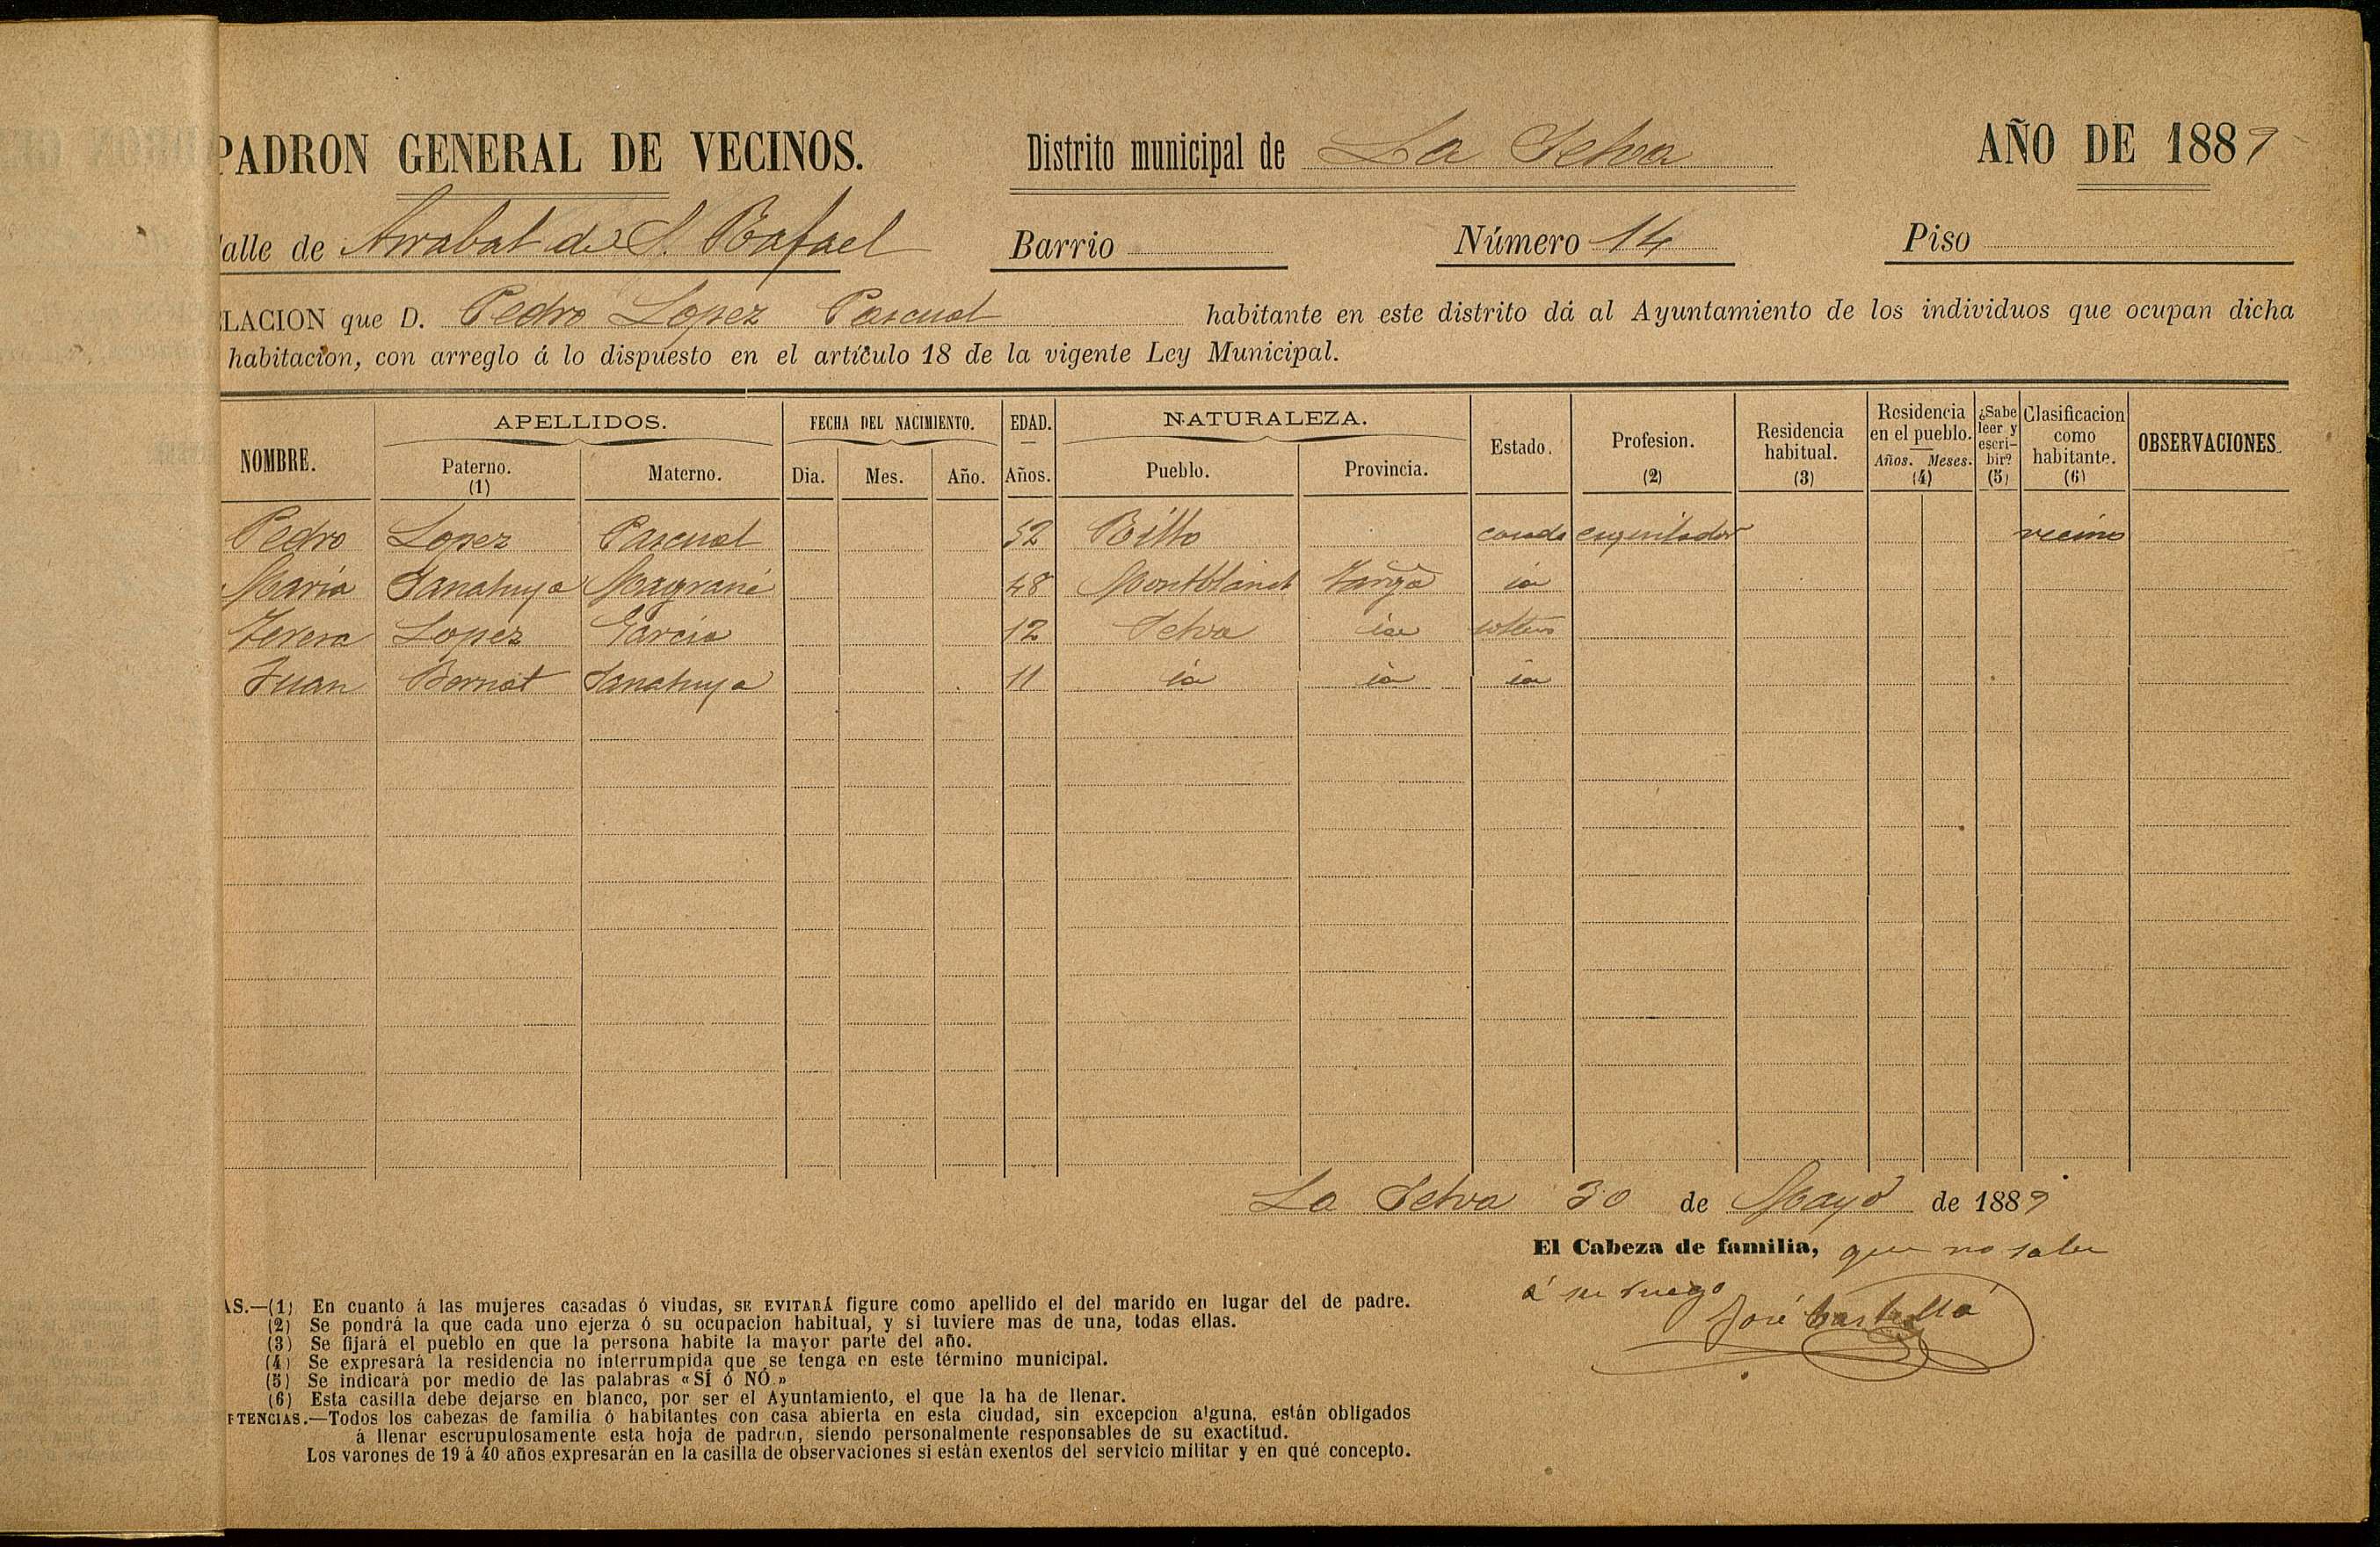 PADRON GENERAL DE VECINOS. Distrito municipal de La Selva AÑO DE 1889
alle de Arrabal de S. Rafael Barrio Número 14 Piso
LACION que D. Pedro Lopez Pascual habitante en este distrito dá al Ayuntamiento de los individuos que ocupan dicha
habitacion, con arreglo á lo dispuesto en el artículo 18 de la vigente Ley Municipal.
NOMBRE. APELLIDOS. FECHA DEL NACIMIENTO. EDAD. NATURALEZA. Estado. Profesion. (2) Residencia habitual. (3) Residencia en el pueblo. Años. Meses. (4) ¿Sabe leer y escri-bir? (5) Clasificacion como habitante. (6) OBSERVACIONES.
Paterno. (1) Materno. Dia. Mes. Año. Años. Pueblo. Provincia.
Pedro Lopez Pascual 52 casado esquilador vecino
Maria Sanahuja Magrané 48 Montblanch Tarrga id
Teresa Lopez Garcia 12 Selva id soltera
Juan Bernat Sanahuja 11 id id id
La Selva 30 de Mayo de 1889
El Cabeza de familia, que no saber
á su ruego
José Castelló
AS.—(1) En cuanto á las mujeres casadas ó viudas, SE EVITARÁ figure como apellido el del marido en lugar del de padre.
(2) Se pondrá la que cada uno ejerza ó su ocupacion habitual, y si tuviere mas de una, todas ellas.
(3) Se fijará el pueblo en que la persona habite la mayor parte del año.
(4) Se expresará la residencia no interrumpida que se tenga en este término municipal.
(5) Se indicará por medio de las palabras «SÍ ó NÓ.»
(6) Esta casilla debe dejarse en blanco, por ser el Ayuntamiento, el que la ha de llenar.
TENCIAS.—Todos los cabezas de familia ó habitantes con casa abierta en esta ciudad, sin excepcion alguna, están obligados
á llenar escrupulosamente esta hoja de padron, siendo personalmente responsables de su exactitud.
Los varones de 19 á 40 años expresarán en la casilla de observaciones si están exentos del servicio militar y en qué concepto.